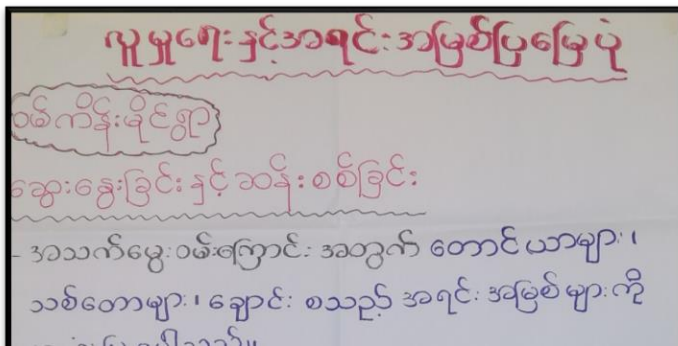 လူမှုရေးနှင့်အရင်းအမြစ်ပြမြေပုံ
ဝမ်ကိန်းမိုင်ရွာ
ဆွေးနွေးခြင်းနှင့် ဆန်းစစ်ခြင်း
- အသက်မွေးဝမ်းကြောင်း အတွက် တောင်ယာများ၊
သစ်တောများ၊ ချောင်း စသည့် အရင်းအမြစ်များကို